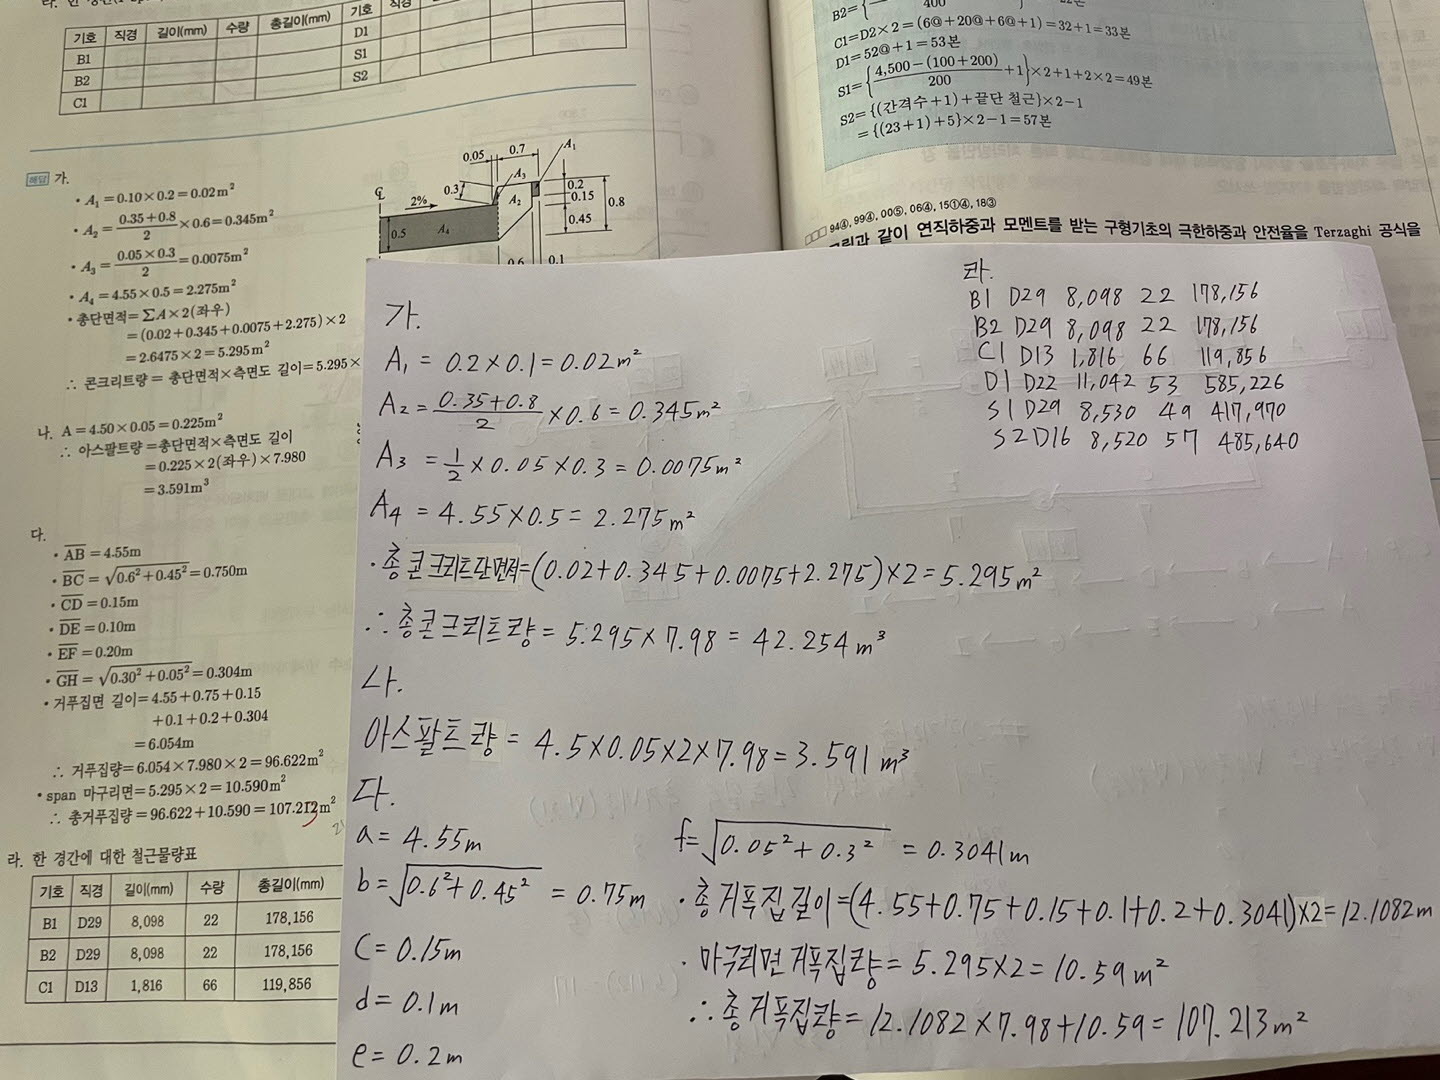 기호 직경 길이(mm) 수량 총길이(mm) 기호 직경
B1 D1
B2 S1
C1 S2
해답 가.
• A₁ = 0.10×0.2 = 0.02m²
• A₂ = (0.35+0.8)/2 ×0.6 = 0.345m²
• A₃ = (0.05×0.3)/2 = 0.0075m²
• A₄ = 4.55×0.5 = 2.275m²
• 총단면적 = ΣA×2(좌우)
= (0.02+0.345+0.0075+2.275)×2
= 2.6475×2 = 5.295m²
∴ 콘크리트량 = 총단면적×측면도 길이 = 5.295×
0.05 0.7 A₁
0.3 A₃ 0.2
A₂ 0.15 0.8
2% 0.45
0.5 A₄
0.6 0.1
나. A = 4.50×0.05 = 0.225m²
∴ 아스팔트량 = 총단면적×측면도 길이
= 0.225×2(좌우)×7.980
= 3.591m³
다.
• AB = 4.55m
• BC = √(0.6²+0.45²) = 0.750m
• CD = 0.15m
• DE = 0.10m
• EF = 0.20m
• GH = √(0.30²+0.05²) = 0.304m
• 거푸집면 길이 = 4.55+0.75+0.15
+0.1+0.2+0.304
= 6.054m
∴ 거푸집량 = 6.054×7.980×2 = 96.622m²
• span 마구리면 = 5.295×2 = 10.590m²
∴ 총거푸집량 = 96.622+10.590 = 107.212m²
라. 한 경간에 대한 철근물량표
기호 직경 길이(mm) 수량 총길이(mm)
B1 D29 8,098 22 178,156
B2 D29 8,098 22 178,156
C1 D13 1,816 66 119,856
B2={ 400
C1=D2×2=(6@+20@+6@+1)=32+1=33본
D1=52@+1=53본
S1={(4,500-(100+200))/200 +1}×2+1+2×2=49본
S2={(간격수+1)+끝단 철근}×2-1
={(23+1)+5}×2-1=57본
94④, 99④, 00⑤, 06④, 15①④, 18③
같이 연직하중과 모멘트를 받는 구형기초의 극한하중과 안전율을 Terzaghi 공식을
가.
A₁ = 0.2×0.1 = 0.02m²
A₂ = (0.35+0.8)/2 ×0.6 = 0.345m²
A₃ = 1/2 ×0.05×0.3 = 0.0075m²
A₄ = 4.55×0.5 = 2.275m²
· 총 콘크리트단면적=(0.02+0.345+0.0075+2.275)×2=5.295m²
∴ 총콘크리트량 = 5.295×7.98 = 42.254m³
나.
아스팔트량 = 4.5×0.05×2×7.98=3.591m³
다.
a = 4.55m
b = √(0.6²+0.45²) = 0.75m
c = 0.15m
d = 0.1m
e = 0.2m
f = √(0.05²+0.3²) = 0.3041m
· 총거푹집길이=(4.55+0.75+0.15+0.1+0.2+0.3041)×2=12.1082m
· 마구리면거푹집량 = 5.295×2 = 10.59m²
∴ 총거푹집량 = 12.1082×7.98+10.59 = 107.213m²
라.
B1 D29 8,098 22 178,156
B2 D29 8,098 22 178,156
C1 D13 1,816 66 119,856
D1 D22 11,042 53 585,226
S1 D29 8,530 49 417,970
S2 D16 8,520 57 485,640